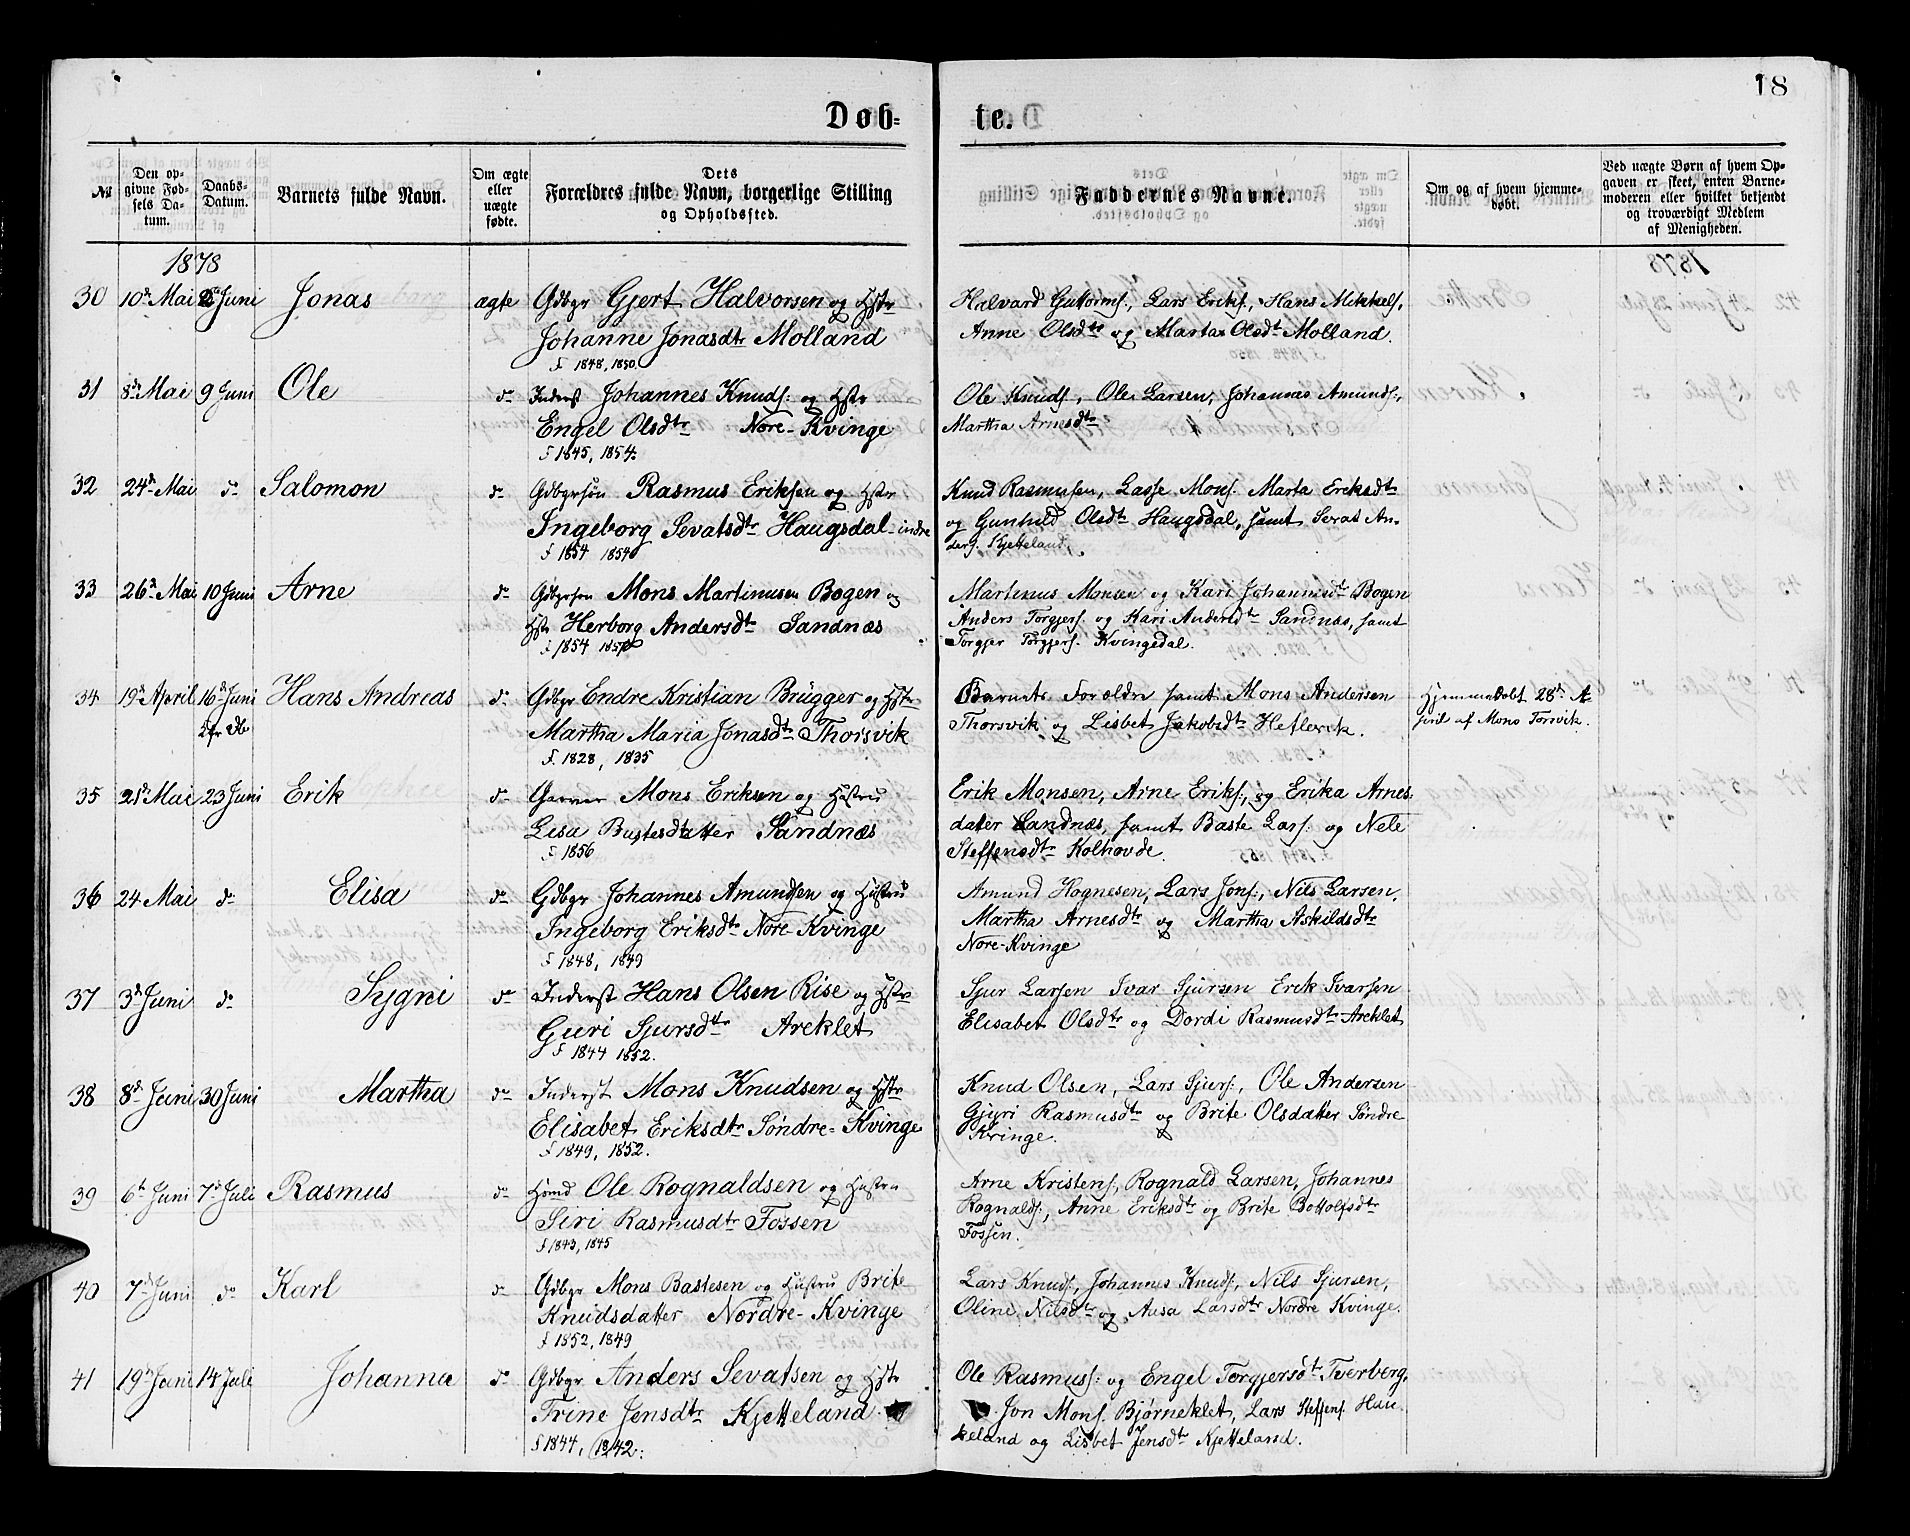 18
Døb-te.
№ | Den opgivne Fødsels Datum. | Daabs-Datum. | Barnets fulde Navn. | Om ægte eller uægte fødte. | Dets Forældres fulde Navn, borgerlige Stilling og Opholdssted. | Faddernes Navne. | Om og af hvem hjemmedøbt. | Ved uægte Børn af hvem Opgaven er skeet, enten Barnemoderen eller hvilket bekjendt og troværdigt Medlem af Menigheden.
1878
30 10de Mai Juni Jonas ægte Gdbgr Gjert Halvorsen og Hstr
Johanne Jonasdtr Molland
f. 1848, 1850.
Halvard Guttorms., Lars Eriks., Hans Mikkels,
Anne Olsdtr og Marta Olsdtr Molland.
31 8de Mai 9 Juni Ole do Inderst Johannes Knuds: og Hstr
Engel Olsdtr Nore-Kvinge
f 1845, 1854.
Ole Knuds, Ole Larsen, Johannes Amunds.,
Martha Arnesdtr
32 24de Mai do Salomon do Gdbgrsøn Rasmus Eriksen og Hstr
Ingeborg Sevatsdtr Haugsdal-indre
f 1854 1854
Knud Rasmussen, Lasse Mons. Marta Eriksdtr
og Gunhild Olsdtr Haugsdal, samt Sevat An-
ders. Kjetteland.
33 26de Mai 10 Juni Arne do Gdbgrsøn Mons Martinusen Bogen og
Hstr Herborg Andersdtr Sandnæs
f 1854
Martenus Monsen og Kari Johannesdtr Bogen
Anders Torgjers. og Kari Andersdtr Sandnæs, samt
Torgjer Torgjers. Kvingedal.
34 19de April 16de Juni Hans Andreas do Gdbgr Endre Kristian Brügger og Hstr
Martha Maria Jonasdtr Thorsvik
f. 1828, 1835
Barnets Forældre samt Mons Andersen
Thorsvik og Lisbet Jakobsdtr Hetlevik.
Hjemmedøbt 28de A-
pril af Mons Torsvik.
35 21de Mai 23 Juni Erik do Garver Mons Eriksen og Hustru
Lisa Bastesdatter Sandnæs
f 1856
Erik Monsen, Arne Eriks., og Erika Arnes-
dater Sandnæs, samt Baste Lars. og Nele
Steffensdtr Kolhovde.
36 24 Mai do Elisa do Gdbgr Johannes Amundsen og Hustru
Ingeborg Eriksdtr Nore-Kvinge
f 1848, 1849
Amund Hognesen, Lars Jons., Nils Larsen,
Martha Arnesdtr og Martha Askildsdtr
Nore-Kvinge
37 3de Juni do Sygni do Inderst Hans Olsen Rise og Hstr
Guri Sjursdtr Areklet
f 1844 1852.
Sjur Larsen Ivar Sjursen Erik Ivarsen
Elisabet Olsdtr og Dordi Rasmusdtr Areklet
38 8de Juni 30 Juni Martha do Inderst Mons Knudsen og Hstr
Elisabet Eriksdtr Søndre-Kvinge
f 1849, 1852.
Knud Olsen, Lars Sjurs., Ole Andersen
Gjyri Rasmusdtr og Brite Olsdatter Søndre
Kvinge.
39 6te Juni 7de Juli Rasmus do Hsmd Ole Rognaldsen og Hustru
Siri Rasmusdtr Fossen
f 1843, 1845
Arne Kristens., Rognald Larsen, Johannes
Rognalds., Anne Eriksdtr og Brite Bottolfsdtr
Fossen.
40 7de Juni do Karl do Gdbgr Mons Bastesen og Hustru Brite
Knudsdatter Nordre-Kvinge
f 1852, 1849
Lars Knuds., Johannes Knuds., Nils Sjursen,
Oline Nilsdtr og Ausa Larsdtr Nordre Kvinge.
41 19de Juni 14 Juli Johanna do Gdbgr Anders Sevatsen og Hstr
Trine Jensdtr Kjetteland
f 1844, 1842.
Ole Rasmuss: og Engel Torgjersdtr Tverberg,
Jon Mons. Bjørneklet, Lars Steffens Hau-
keland og Lisbet Jensdtr Kjetteland.